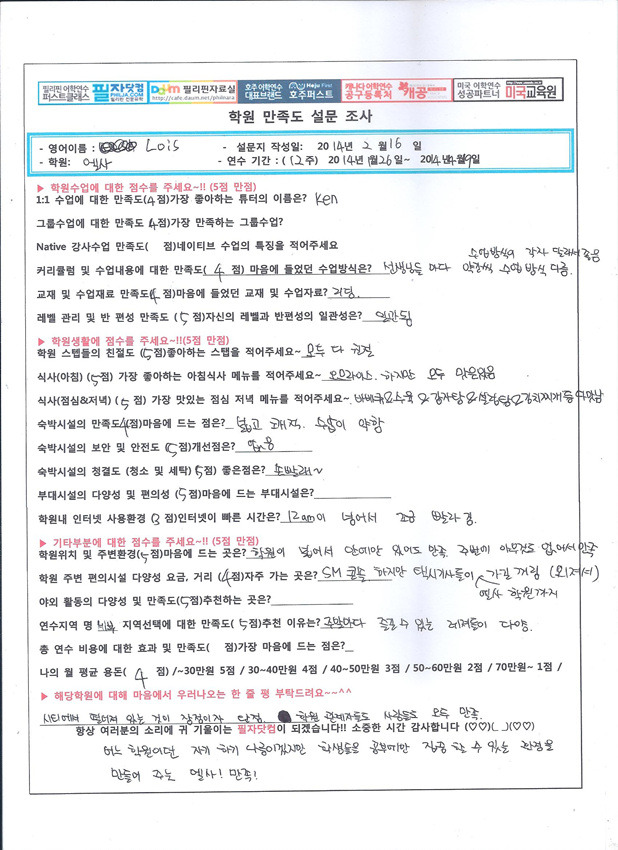 필리핀 어학연수 퍼스트클래스 필자닷컴 PHILJA.COM 필리핀 전문유학 Daum 필리핀자료실 http://cafe.daum.net/philnara 호주 어학연수 대표브랜드 Hoju First 호주퍼스트 캐나다 어학연수 공구등록처 캐공 미국 어학연수 성공파트너 미국교육원
학원 만족도 설문 조사
- 영어이름 : Lois - 설문지 작성일: 2014 년 2 월 16 일
- 학원: 엘사 - 연수 기간 : (12주) 2014년1월26일~ 2014년4월19일
▶ 학원수업에 대한 점수를 주세요~!! (5점 만점)
1:1 수업에 대한 만족도(4점)가장 좋아하는 튜터의 이름은? Ken
그룹수업에 대한 만족도 4점)가장 만족하는 그룹수업?
Native 강사수업 만족도( 점)네이티브 수업의 특징을 적어주세요
수업방식이 각자 달라서 좋음
커리큘럼 및 수업내용에 대한 만족도( 4 점) 마음에 들었던 수업방식은? 선생님들 마다 약간씩 수업 방식 다름.
교재 및 수업재료 만족도(4점)마음에 들었던 교재 및 수업자료? 리딩.
레벨 관리 및 반 편성 만족도 (5점)자신의 레벨과 반편성의 일관성은? 일관됨
▶ 학원생활에 점수를 주세요~!!(5점 만점)
학원 스텝들의 친절도 (5점)좋아하는 스탭을 적어주세요~ 모두 다 친절
식사(아침) (5점) 가장 좋아하는 아침식사 메뉴를 적어주세요~ 오므라이스. 하지만 모두 맛있었음
식사(점심&저녁) (5점) 가장 맛있는 점심 저녁 메뉴를 적어주세요~ 바베큐&수육 & 감자탕 & 설렁탕&김치찌개 등 다맛남
숙박시설의 만족도(4점)마음에 드는 점은? 넓고 쾌적. 수압이 약함
숙박시설의 보안 및 안전도 (5점)개선점은? 없음
숙박시설의 청결도 (청소 및 세탁)(5점) 좋은점은? 손빨래~
부대시설의 다양성 및 편의성 (5점)마음에 드는 부대시설은?
학원내 인터넷 사용환경 (3 점)인터넷이 빠른 시간은? 12am이 넘어서 조금 빨라짐.
▶ 기타부분에 대한 점수를 주세요~!! (5점 만점)
학원위치 및 주변환경(5점)마음에 드는 곳은? 학원이 넓어서 안에만 있어도 만족. 주변이 아무것도 없어서 만족
학원 주변 편의시설 다양성 요금, 거리 (4점)자주 가는 곳은? SM 콘솔. 하지만 택시기사들이 엘사 학원까지 가길 꺼림 (외져서)
야외 활동의 다양성 및 만족도(5점)추천하는 곳은?
연수지역 명 세부 지역선택에 대한 만족도 (5점)추천 이유는? 주말마다 즐길수 있는 레져들이 다양.
총 연수 비용에 대한 효과 및 만족도( 점)가장 마음에 드는 점은?
나의 월 평균 용돈( 4 점) /~30만원 5점 / 30~40만원 4점 / 40~50만원 3점 / 50~60만원 2점 / 70만원~ 1점 /
▶ 해당학원에 대해 마음에서 우러나오는 한 줄 평 부탁드려요~~^^
시티에서 떨어져 있는 것이 장점이자 단점. 학원 관계자들도 사람들도 모두 만족.
항상 여러분의 소리에 귀 기울이는 필자닷컴이 되겠습니다!! 소중한 시간 감사합니다 (♡♡)(_ _)(♡♡)
어느 학원이던 자기 하기 나름이겠지만 학생들을 공부에만 집중 할 수 있는 환경을
만들어 주는 엘사! 만족!